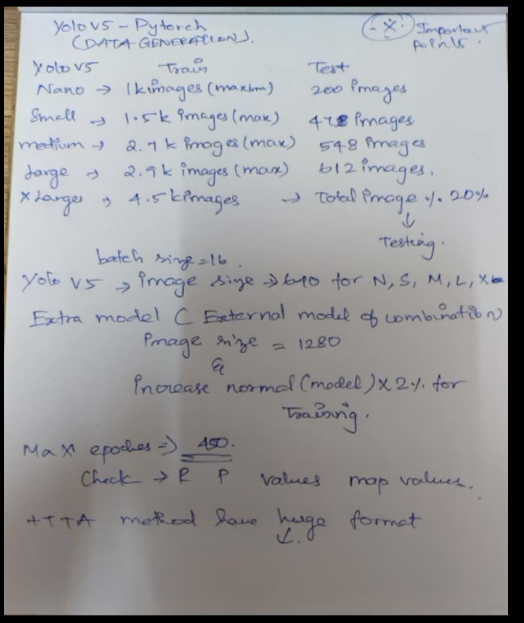 Yolo V5 - Pytorch
(DATA GENERATION).
-※- Important
points.
Yolo V5 Train Test
Nano → 1k images (maximum) 200 images
Small → 1.5k images (max) 478 images
medium → 2.7k images (max) 548 images
Large → 2.9k images (max) 612 images.
X Larges → 4.5k images → Total image % 20%
↓
Testing.
batch size = 16
Yolo V5 → image size → 640 for N, S, M, L, XL
Extra model C External model of combination)
image size = 1280
&
increase normal (model) X 2% for
Training.
Max epoches ⇒ 400.
Check → R P values map values.
+TTA method have huge format
↓.